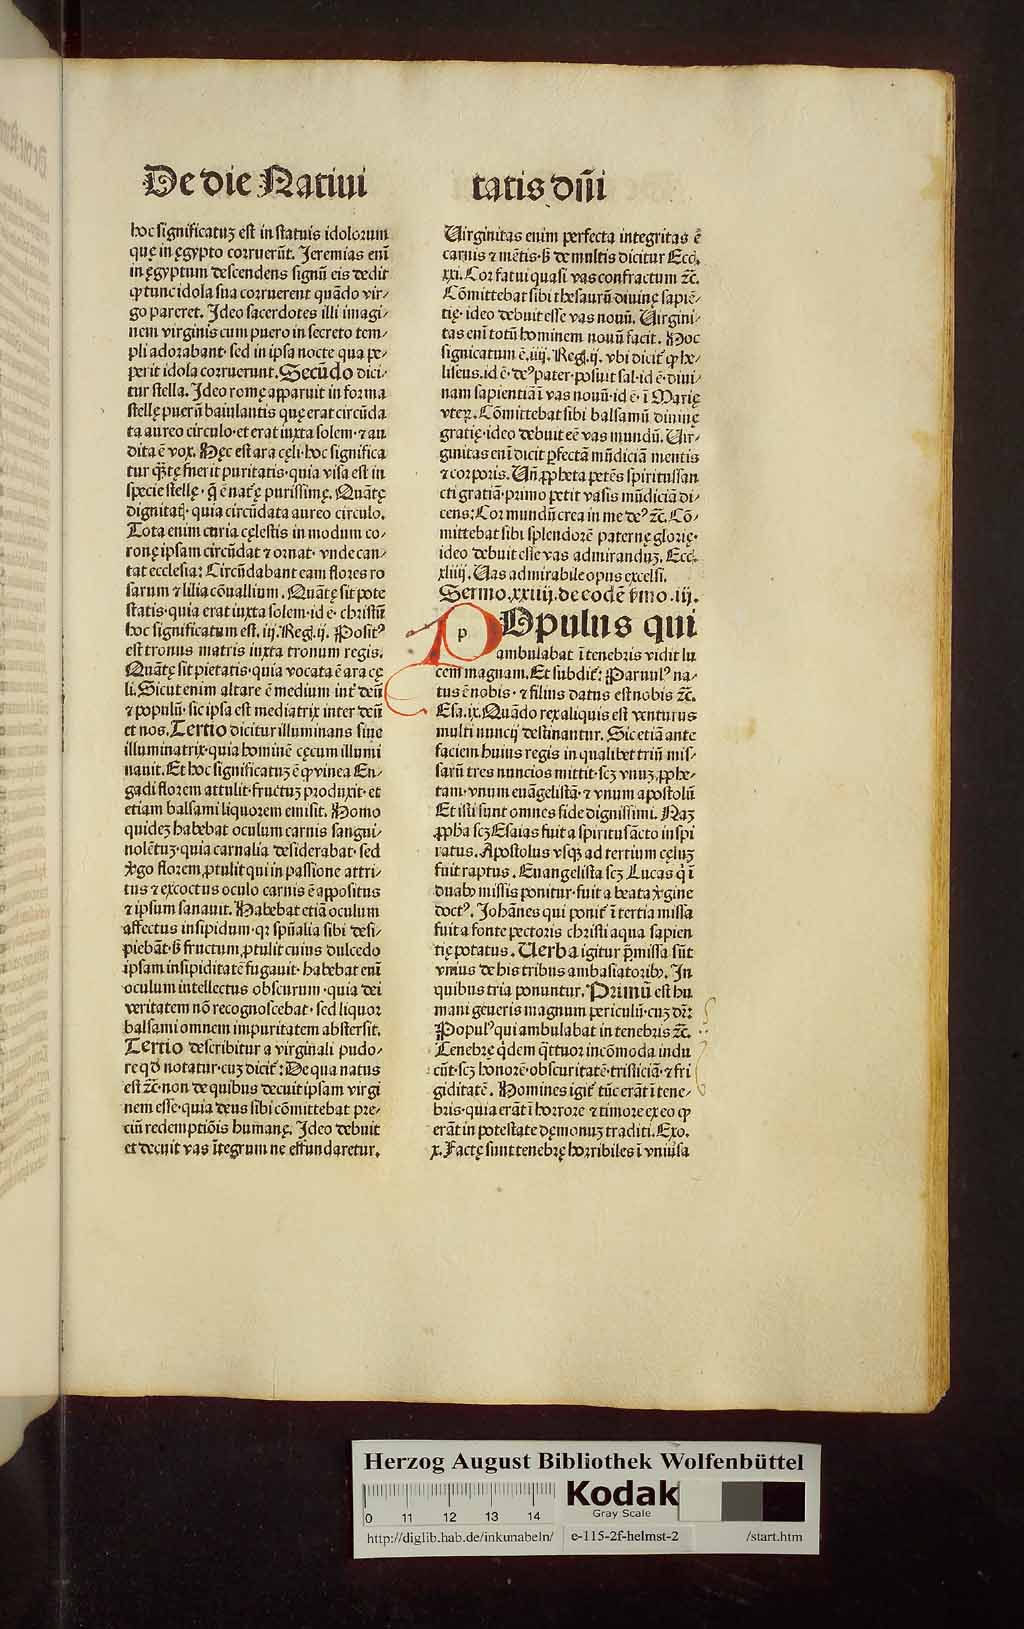 De die Natiui
tatis dn̄i
hoc significatuʒ est in statuis idolorum
quę in ęgypto corruerūt. Jeremias enī
in ęgyptum descendens signū eis dedit
ꝙ tunc idola sua corruerent quādo vir-
go pareret. Ideo sacerdotes illi imagi-
nem virginis cum puero in secreto tem-
pli adorabant· sed in ipsa nocte qua pe-
perit idola corruerunt. Secūdo dici-
tur stella. Ideo romę apparuit in forma
stellę puerū baiulantis quę erat circūda
ta aureo circulo· et erat iuxta solem· ⁊ au
dita ē vox. Hęc est ara cęli· hoc significa
tur q̄ʒtę fuerit puritatis· quia visa est in
specie stellę· q̄ ē nat̄ę purissimę. Quātę
dignitatꝭ· quia circūdata aureo circulo.
Tota enim curia cęlestis in modum co-
ronę ipsam circūdat ⁊ ornat· vnde can-
tat ecclesia: Circūdabant eam flores ro
sarum ⁊ lilia cōuallium. Quātę sit pote
statis· quia erat iuxta solem· id ē· christū
hoc significatum est. iij. Reg. ij. Positꝰ
est tronus matris iuxta tronum regis.
Quātę sit pietatis· quia vocata ē ara cę
li. Sicut enim altare ē medium int̄ deū
⁊ populū· sic ipsa est mediatrix inter deū
et nos. Tertio dicitur illuminans siue
illuminatrix· quia hominē cęcum illumi
nauit. Et hoc significatuʒ ē ꝙ vinea En-
gadi florem attulit· fructuʒ produxit· et
etiam balsami liquorem emisit. Homo
quideʒ habebat oculum carnis sangui-
nolētuʒ· quia carnalia desiderabat· sed
x̄go florem ꝓtulit qui in passione attri-
tus ⁊ excoctus oculo carnis ē appositus
⁊ ipsum sanauit. Habebat etiā oculum
affectus insipidum· qꝛ spūalia sibi desi-
piebāt· ß fructum ꝓtulit cuius dulcedo
ipsam insipiditatē fugauit· habebat enī
oculum intellectus obscurum· quia dei
veritatem nō recognoscebat· sed liquor
balsami omnem impuritatem abstersit.
Tertio describitur a virginali pudo-
re qd̄ notatur· cuʒ dicit̄: De qua natus
est ⁊c̄· non de quibus decuit ipsam virgi
nem esse· quia deus sibi cōmittebat pre-
ciū redemptiōis humanę. Ideo debuit
et decuit vas ītegrum ne effundaretur.
Uirginitas enim perfecta integritas ē
carnis ⁊ mētis· ß de multis dicitur Ecc̄.
xxi. Cor fatui quasi vas confractum ⁊c̄.
Cōmittebat sibi thesaurū diuinę sapiē-
tię· ideo debuit esse vas nouū. Uirgini-
tas enī totū hominem nouū facit. Hoc
signicatum ē. iiij. Reg. ij. vbi dicit̄ ꝙ he-
liseus. id ē· deꝰ pater· posuit sal· id ē· diui-
nam sapientiā ī vas nouū· id ē· ī Marię
vterꝝ. Cōmittebat sibi balsamū diuinę
gratię· ideo debuit eē vas mundū. Uir-
ginitas enī dicit ꝑfectā mūdiciā mentis
⁊ corporis. Un̄ ꝓpheta petēs spiritussan
cti gratiā· primo petit vasis mūdiciā di-
cens: Cor mundū crea in me deꝰ ⁊c̄. Cō-
mittebat sibi splendorē paternę glorię·
ideo debuit esse vas admiranduʒ. Ecc̄.
xliij. Uas admirabile opus excelsi.
Sermo. xxiiij. de eodē ẜmo. iij.
p
Opulus qui
ambulabat ī tenebris vidit lu
cem magnam. Et subdit̄: Paruulꝰ na-
tus ē nobis· ⁊ filius datus est nobis ⁊c̄.
Esa. ix. Quādo rex aliquis est venturus
multi nuncij destinantur. Sic etiā ante
faciem huius regis in qualibet triū mis-
sarū tres nuncios mittit· scʒ vnuʒ ꝓphe-
tam· vnum euāgelistā· ⁊ vnum apostolū
Et isti sunt omnes fide dignissimi. Naʒ
ꝓpħa scʒ Esaias fuit a spiritusācto inspi
ratus. Apostolus vsqʒ ad tertium cęluʒ
fuit raptus. Euangelista scʒ Lucas q̇ ī
duabꝰ missis ponitur· fuit a beata x̄gine
doctꝰ. Johānes qui ponit̄ ī tertia missa
fuit a fonte pectoris christi aqua sapien
tię potatus. Uerba igitur p̄missa sūt
vnius de his tribus ambasiatoribꝰ. In
quibus tria ponuntur. Primū est hu
mani generis magnum periculū· cuʒ dr̄:
Populꝰ qui ambulabat in tenebris ⁊c̄.
Tenebrę q̇dem q̄ttuor incōmoda indu
cūt· scʒ honorē· obscuritatē· tristiciā· ⁊ fri
giditatē. Homines igit̄ tūc erāt ī tene-
bris· quia erāt ī horrore ⁊ timore ex eo ꝙ
erāt in potestate dęmonuʒ traditi. Exo.
x. Factę sunt tenebrę horribiles ī vniūsa
Herzog August Bibliothek Wolfenbüttel
0 11 12 13 14
Kodak
Gray Scale
http://diglib.hab.de/inkunabeln/ e-115-2f-helmst-2 /start.htm